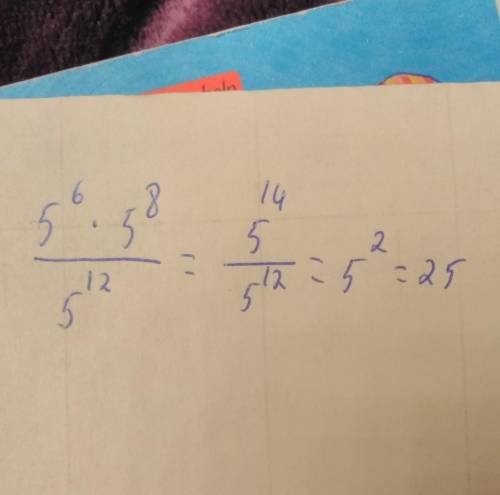 5⁶ · 5⁸ / 5¹² = 5¹⁴ / 5¹² = 5² = 25